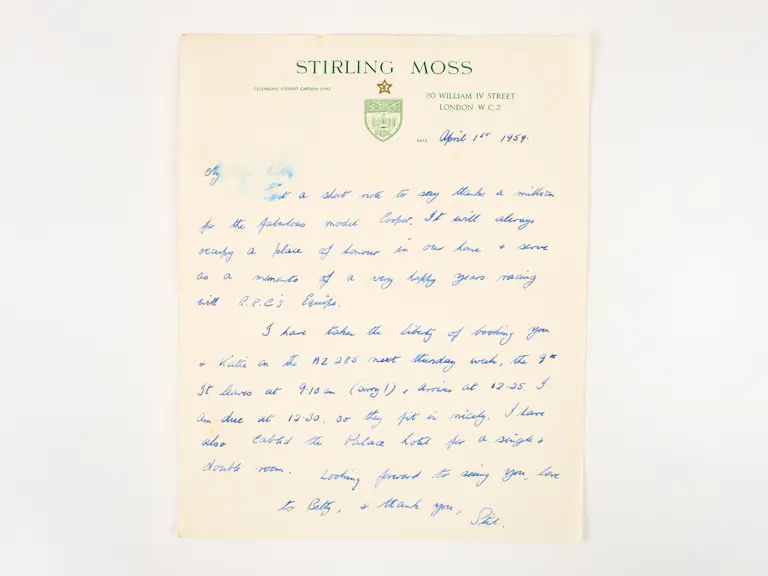 STIRLING MOSS
TELEPHONE: COVENT GARDEN
20 WILLIAM IV STREET
LONDON W.C.2
DATE April 1st 1959.
My
a short note to say thanks a million
for the fabulous model Cooper. It will always
occupy a place of honour in our home & serve
as a memento of a very happy years racing
with R.R.C's Equipe.
I have taken the liberty of booking you
& Katie on the AZ 285 next thursday week, the 9th
It leaves at 9.10am (sorry!) & arrives at 12.25. I
am due at 12.30, so they fit in nicely. I have
also cabled the Palace hotel for a single &
double room. Looking forward to seeing you, love
to Betty, & thank you,
Stirl.